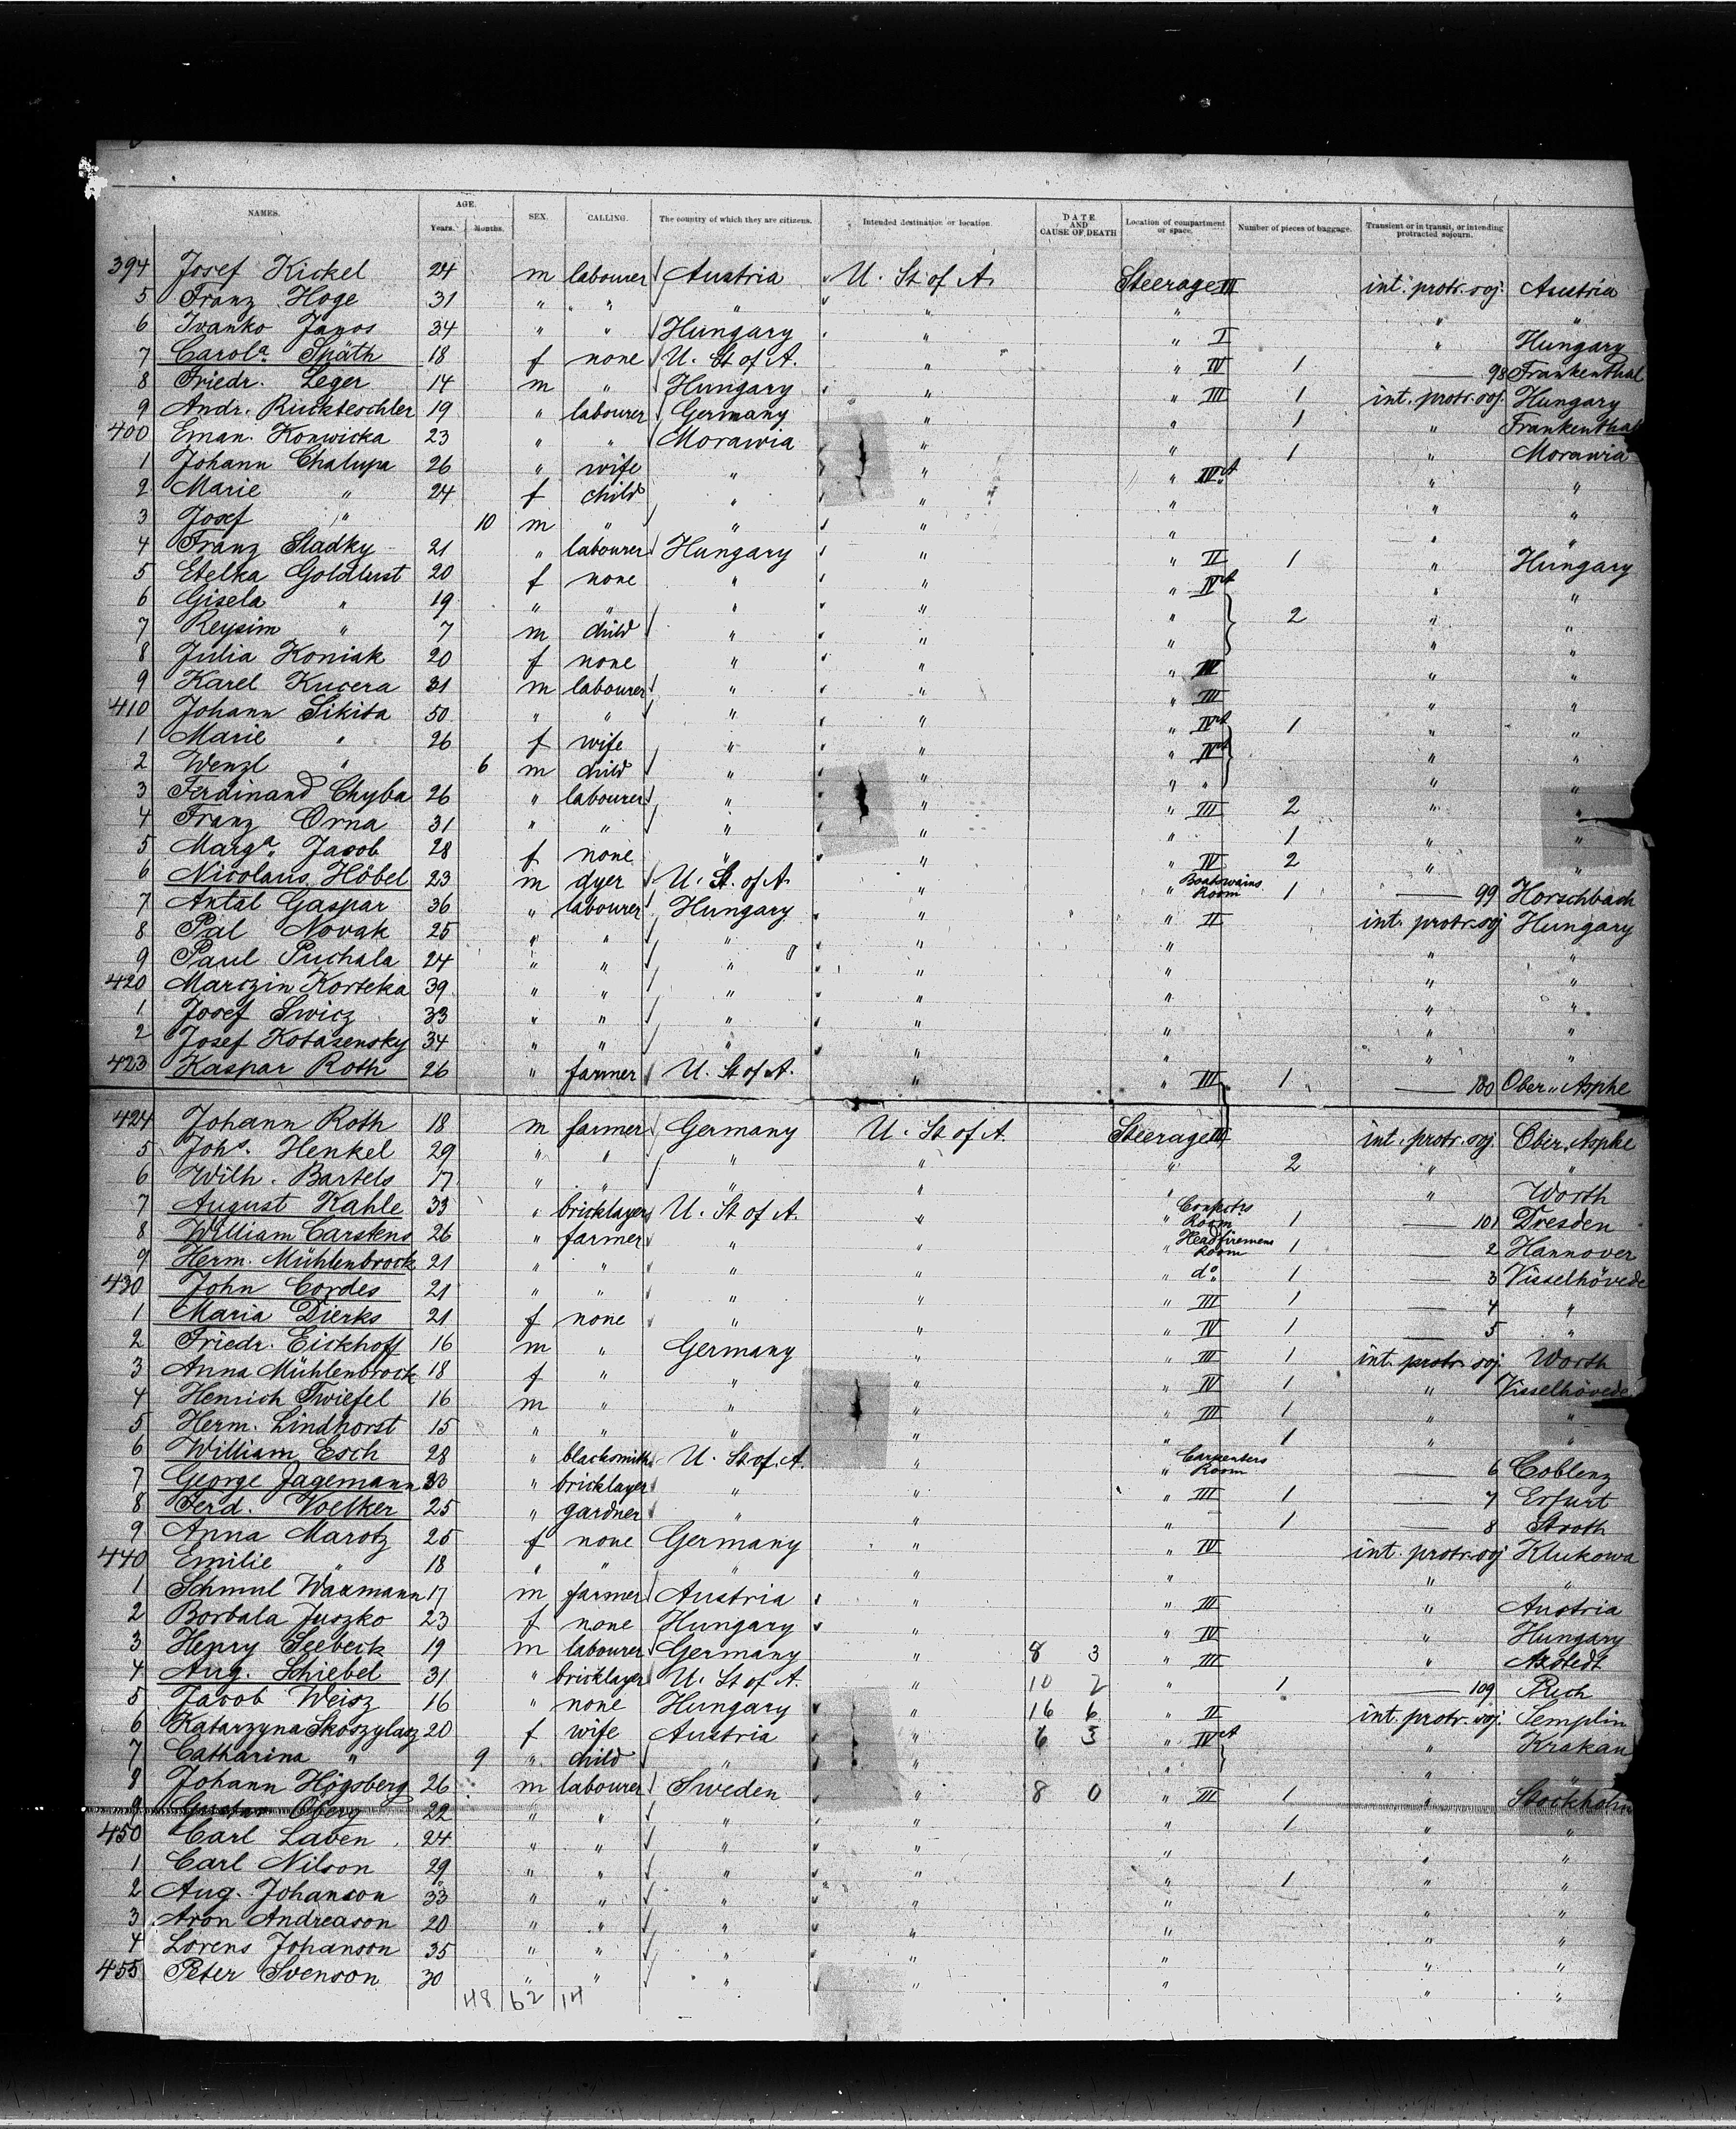 NAMES. AGE. Years. Months. SEX. CALLING. The country of which they are citizens. Intended destination or location. DATE AND CAUSE OF DEATH Location of compartment or space. Number of pieces of baggage. Transient or in transit, or intending protracted sojourn.
394 Josef Kickel 24 m labourer Austria U. St of A. Steerage III int. protr. soj. Austria
5 Franz Hoge 31 " " " " " " "
6 Ivanko Janos 34 " " Hungary " " I " Hungary
7 Carola Späth 18 f none U. St of A. " " IV 1 — 98 Frankenthal
8 Friedr. Leger 14 m " Hungary " " III 1 int. protr. soj. Hungary
9 Andr. Ruckteschler 19 " labourer Germany " " 1 " Frankenthal
400 Eman. Konwicka 23 " " Morawia " " 1 " Morawia
1 Johann Chalupa 26 " wife " " " IV A " "
2 Marie " 24 f child " " " " "
3 Josef " 10 m " " " " " "
4 Franz Sladky 21 " labourer Hungary " " II 1 " Hungary
5 Etelka Goldlust 20 f none " " " IV A " "
6 Gisela " 19 " " " " " 2 " "
7 Reysim " 7 m child " " " " "
8 Julia Koniak 20 f none " " " IV " "
9 Karel Kucera 31 m labourer " " " III " "
410 Johann Sikita 50 " " " " " IV A 1 " "
1 Marie " 26 f wife " " " IV A " "
2 Wenzl " 6 m child " " " " " "
3 Ferdinand Chyba 26 " labourer " " " III 2 " "
4 Franz Orna 31 " " " " " 1 " "
5 Marga. Jacob 28 f none " " " IV 2 " "
6 Nicolaus Höbel 23 m dyer U. St. of A. " " Boatswains Room 1 — 99 Horschbach
7 Antal Gaspar 36 " labourer Hungary " " II int. protr. soj Hungary
8 Pal Novak 25 " " " " " " "
9 Paul Puchala 24 " " " " " " "
420 Marczin Korteka 39 " " " " " " "
1 Josef Swicz 33 " " " " " " "
2 Josef Kotasensky 34 " " " " " " "
423 Kaspar Roth 26 " farmer U. St of A. " " III 1 — 100 Ober-Asphe
424 Johann Roth 18 m farmer Germany U. St of A. Steerage III int. protr. soj. Ober-Asphe
5 Johs. Henkel 29 " " " " " 2 " "
6 Wilh. Bartels 17 " " " " " " Worth
7 August Kahle 33 " bricklayer U. St of A. " " Room 1 — 101 Dresden
8 William Carstens 26 " farmer " " " Headfiremens Room 1 — 2 Hannover
9 Herm. Mühlenbrock 21 " " " " " do. 1 — 3 Visselhövede
430 John Cordes 21 " " " " " III 1 — 4 "
1 Maria Dierks 21 f none " " " IV 1 — 5 "
2 Friedr. Eickhoff 16 m " Germany " " III 1 int. protr. soj. Worth
3 Anna Mühlenbrock 18 f " " " " IV 1 " Visselhövede
4 Henrich Twiefel 16 m " " " " III 1 " "
5 Herm. Lindhorst 15 " " " " " 1 " "
6 William Esch 28 " blacksmith U. St of. A. " " Carpenters Room — 6 Coblenz
7 George Jagemann 33 " bricklayer " " " III 1 — 7 Erfurt
8 Ferd. Voelker 25 " gardner " " " 1 — 8 Stroth
9 Anna Marotz 25 f none Germany " " IV int. protr. soj Klukowa
440 Emilie " 18 " " " " " " "
1 Schmul Waxmann 17 m farmer Austria " " III " Austria
2 Borbala Juszko 23 f none Hungary " " IV " Hungary
3 Henry Seebeck 19 m labourer Germany " 8 3 " III " Axstedt
4 Aug. Schiebel 31 " bricklayer U. St of A. " 10 2 " 1 — 109
5 Jacob Weisz 16 " none Hungary " 16 6 " II int. protr. soj. Templin
6 Katarzyna Skoszylasz 20 f wife Austria " 6 3 " IV A " Krakau
7 Catharina " 9 " child " " " " "
8 Johann Högsberg 26 m labourer Sweden " 8 0 " III 1 " Stockholm
9 Gustav Oberg 22 " " " " " 1 " "
450 Carl Laven 24 " " " " " " "
1 Carl Nilson 29 " " " " " 1 " "
2 Aug. Johanson 33 " " " " " " "
3 Aron Andreason 20 " " " " " " "
4 Lorens Johanson 35 " " " " " " "
455 Peter Svenson 30 " " " " " " "
48 62 14